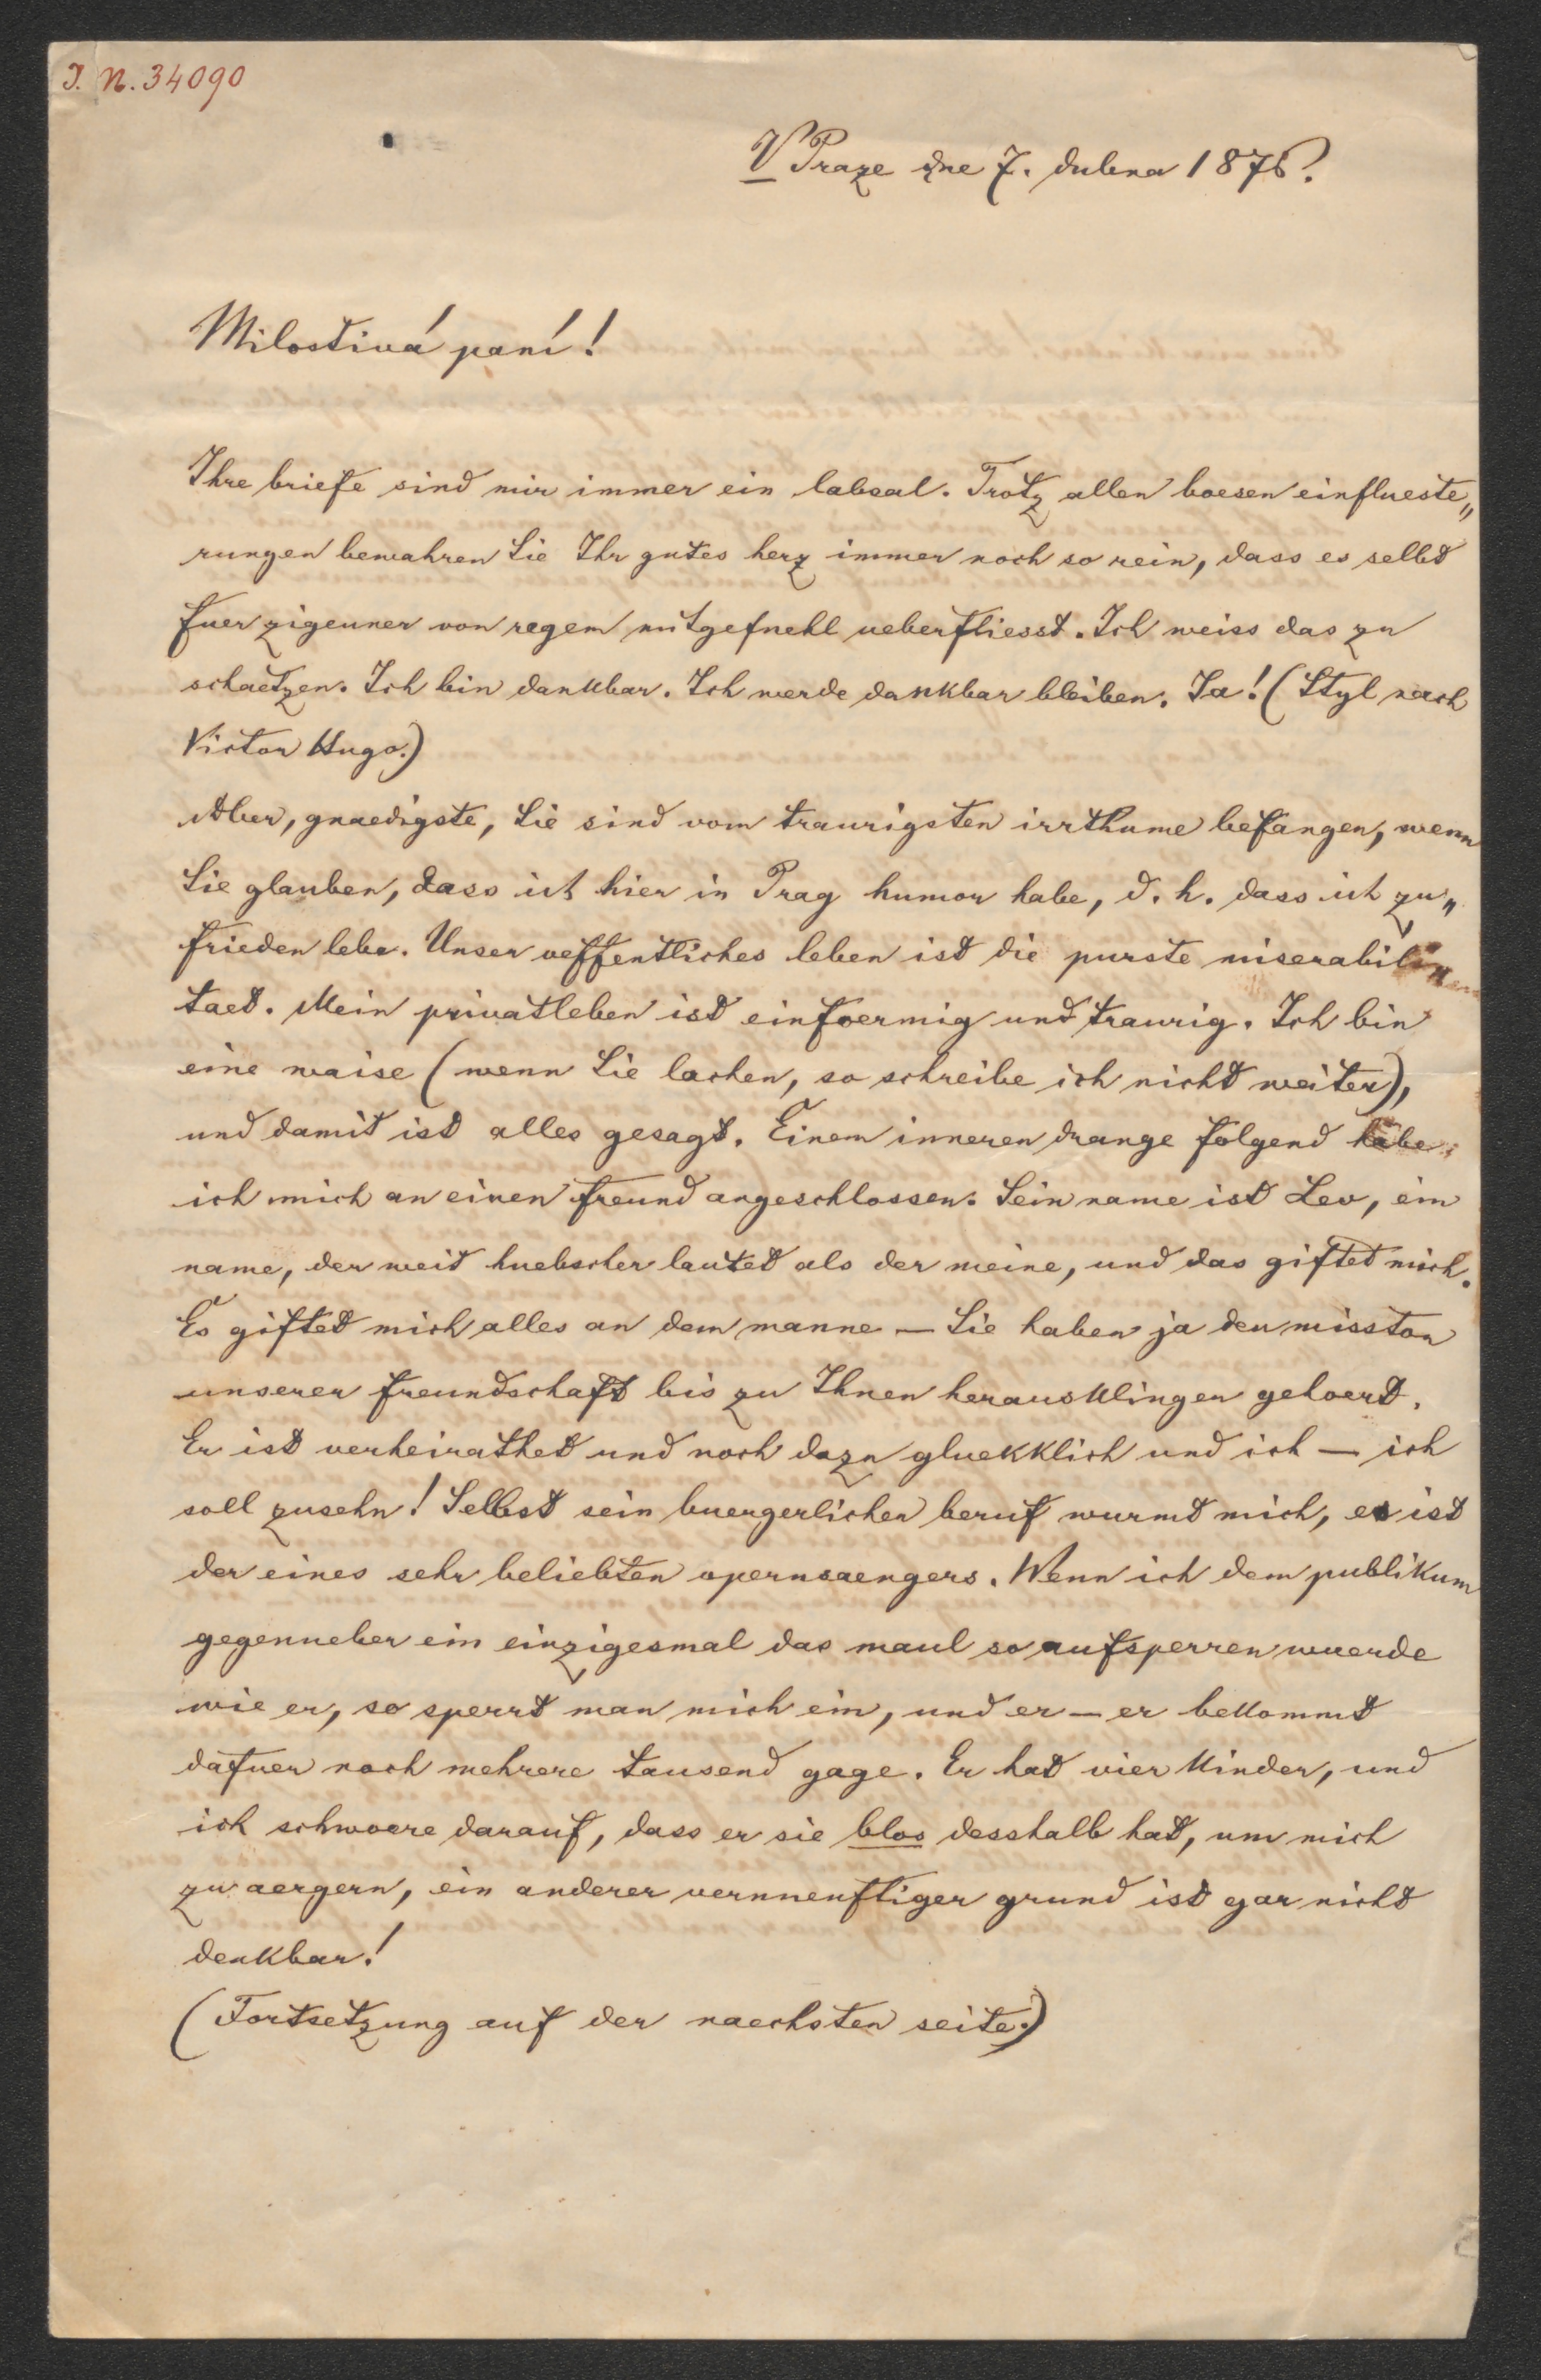 J. N. 34090
V Praze dne 7. dubna 1876.
Milostivá paní!
Ihre briefe sind mir immer ein labsal. Trotz allen boesen einflueste„
rungen bewahren Sie Ihr gutes herz immer noch so rein, dass es selbst
fuer zigeuner von regem mitgefuehl ueberfliesst. Ich weiss das zu
schaetzen. Ich bin dankbar. Ich werde dankbar bleiben. Ja! (Styl nach
Victor Hugo.)
Aber, gnaedigste, Sie sind vom traurigsten irrthume befangen, wenn
Sie glauben, dass ich hier in Prag humor habe, d. h. dass ich zu„
frieden lebe. Unser oeffentliches leben ist die purste miserabili„
taet. Mein privatleben ist einfoermig und traurig. Ich bin
eine waise (wenn Sie lachen, so schreibe ich nicht weiter),
und damit ist alles gesagt. Einem inneren drange folgend habe
ich mich an einen freund angeschlossen. Sein name ist Lev, ein
name, der weit huebscher lautet als der meine, und das giftet mich.
Es giftet mich alles an dem manne — Sie haben ja den misston
unserer freundschaft bis zu Ihnen herausklingen gehoert.
Er ist verheirathet und noch dazu gluekklich und ich — ich
soll zusehn! Selbst sein buergerlicher beruf wurmt mich, es ist
der eines sehr beliebten opernsaengers. Wenn ich dem publikum
gegenueber ein einzigesmal das maul so aufsperren wuerde
wie er, so sperrt man mich ein, und er — er bekommt
dafuer noch mehrere tausend gage. Er hat vier kinder, und
ich schwoere darauf, dass er sie blos desshalb hat, um mich
zu aergern, ein anderer vernuenftiger grund ist gar nicht
denkbar!
(Fortsetzung auf der naechsten seite.)